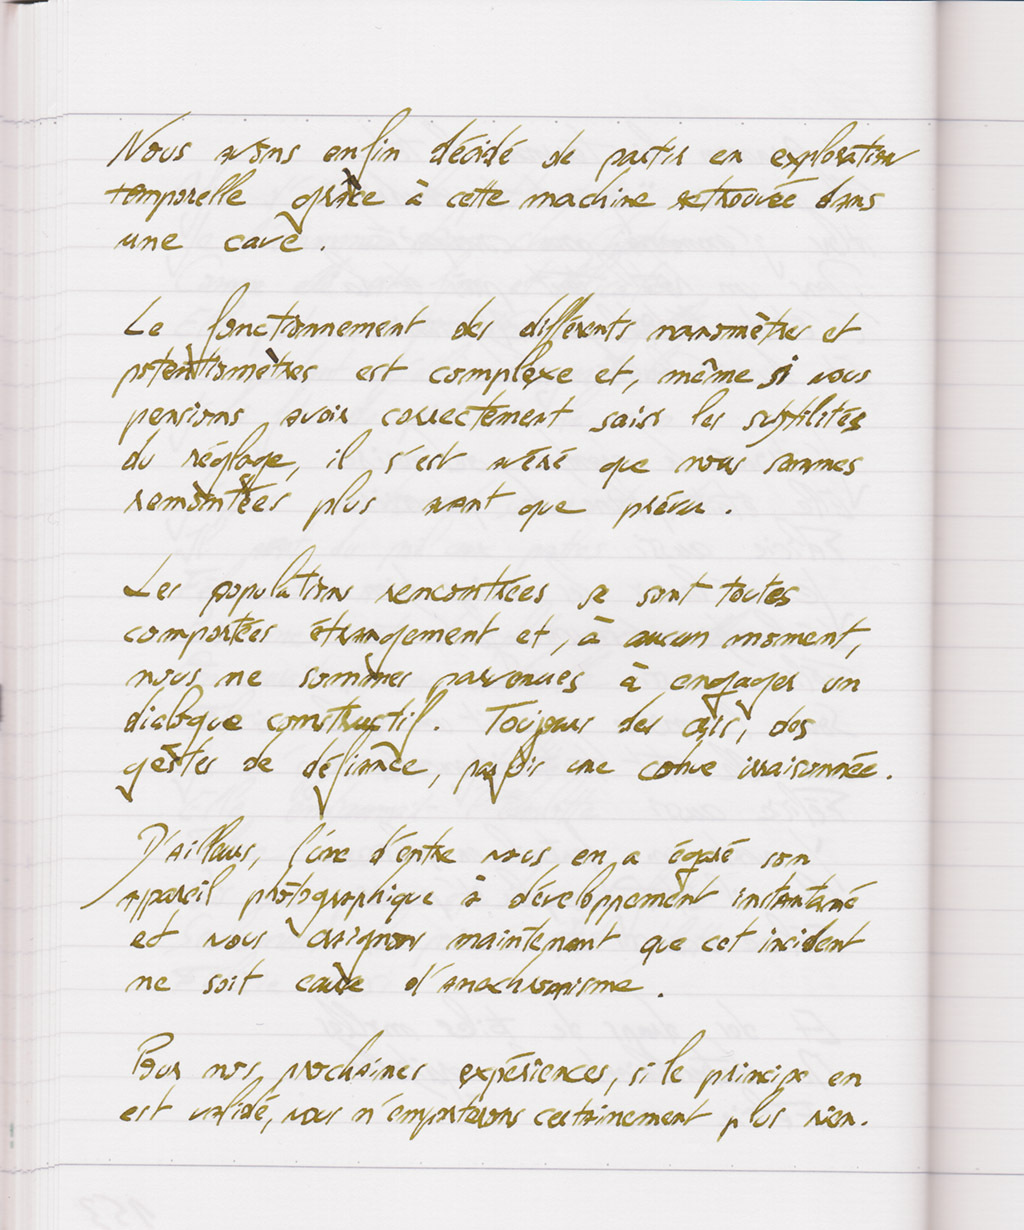 Nous avons enfin décidé de partir en exploration
temporelle grâce à cette machine retrouvée dans
une cave.
Le fonctionnement des différents manomètres et
potentiomètres est complexe et, même si nous
pensions avoir correctement saisi les subtilités
du réglage, il s'est avéré que nous sommes
remontées plus avant que prévu.
Les populations rencontrées se sont toutes
comportées étrangement et, à aucun moment,
nous ne sommes parvenues à engager un
dialogue constructif. Toujours des cris, des
gestes de défiance, parfois une cohue irraisonnée.
D'ailleurs, l'une d'entre nous en a égaré son
appareil photographique à développement instantané
et nous craignons maintenant que cet incident
ne soit cause d'anachronisme.
Pour nos prochaines expériences, si le principe en
est validé, nous n'emporterons certainement plus rien.